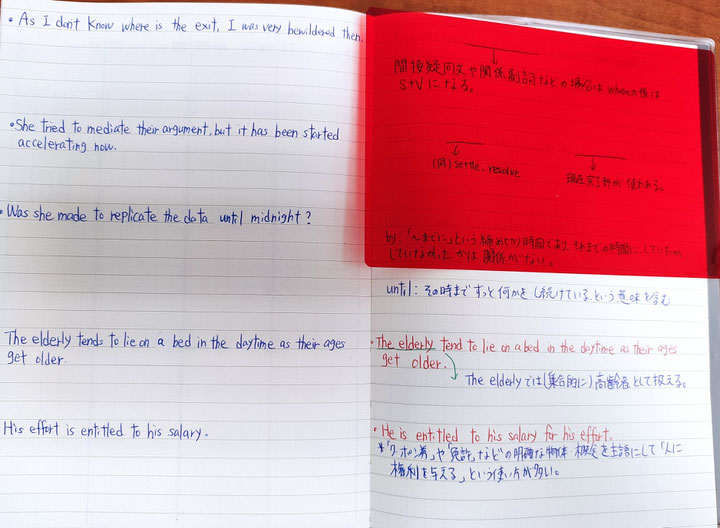 • As I don't know where is the exit, I was very bewildered then.
• She tried to mediate their argument, but it has been started
accelerating now.
• Was she made to replicate the data until midnight?
The elderly tends to lie on a bed in the daytime as their ages
get older.
His effort is entitled to his salary.
間接疑問文や関係副詞などの場合はwhereの後は
S+Vになる。
(同) settle, resolve
現在完了形が使われる。
by: 「〜までに」という締めきり時間であり、それまでの時間にしていたか
していなかったかは関係がない。
until: その時までずっと何かをし続けているという意味を含む
• The elderly tend to lie on a bed in the daytime as their ages
get older.
The elderly では(集合的に)高齢者として扱える。
• He is entitled to his salary for his effort.
*「クーポン券」や「免許」などの明確な物体・概念を主語にして「人に
権利を与える」という使い方が多い。